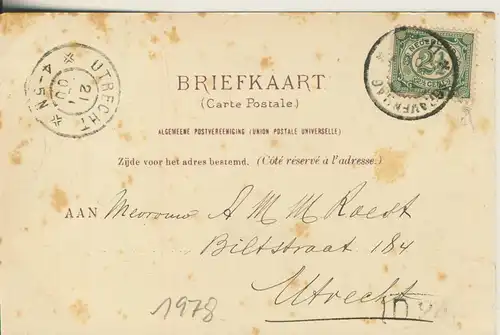 UTRECHT
21
1
00
4-5N
2½
BRIEFKAART
(Carte Postale.)
ALGEMEENE POSTVEREENIGING (UNION POSTALE UNIVERSELLE)
Zijde voor het adres bestemd. (Côté réservé à l'adresse.)
AAN Mevrouw A M M Roest
Biltstraat 184
Utrecht
1978